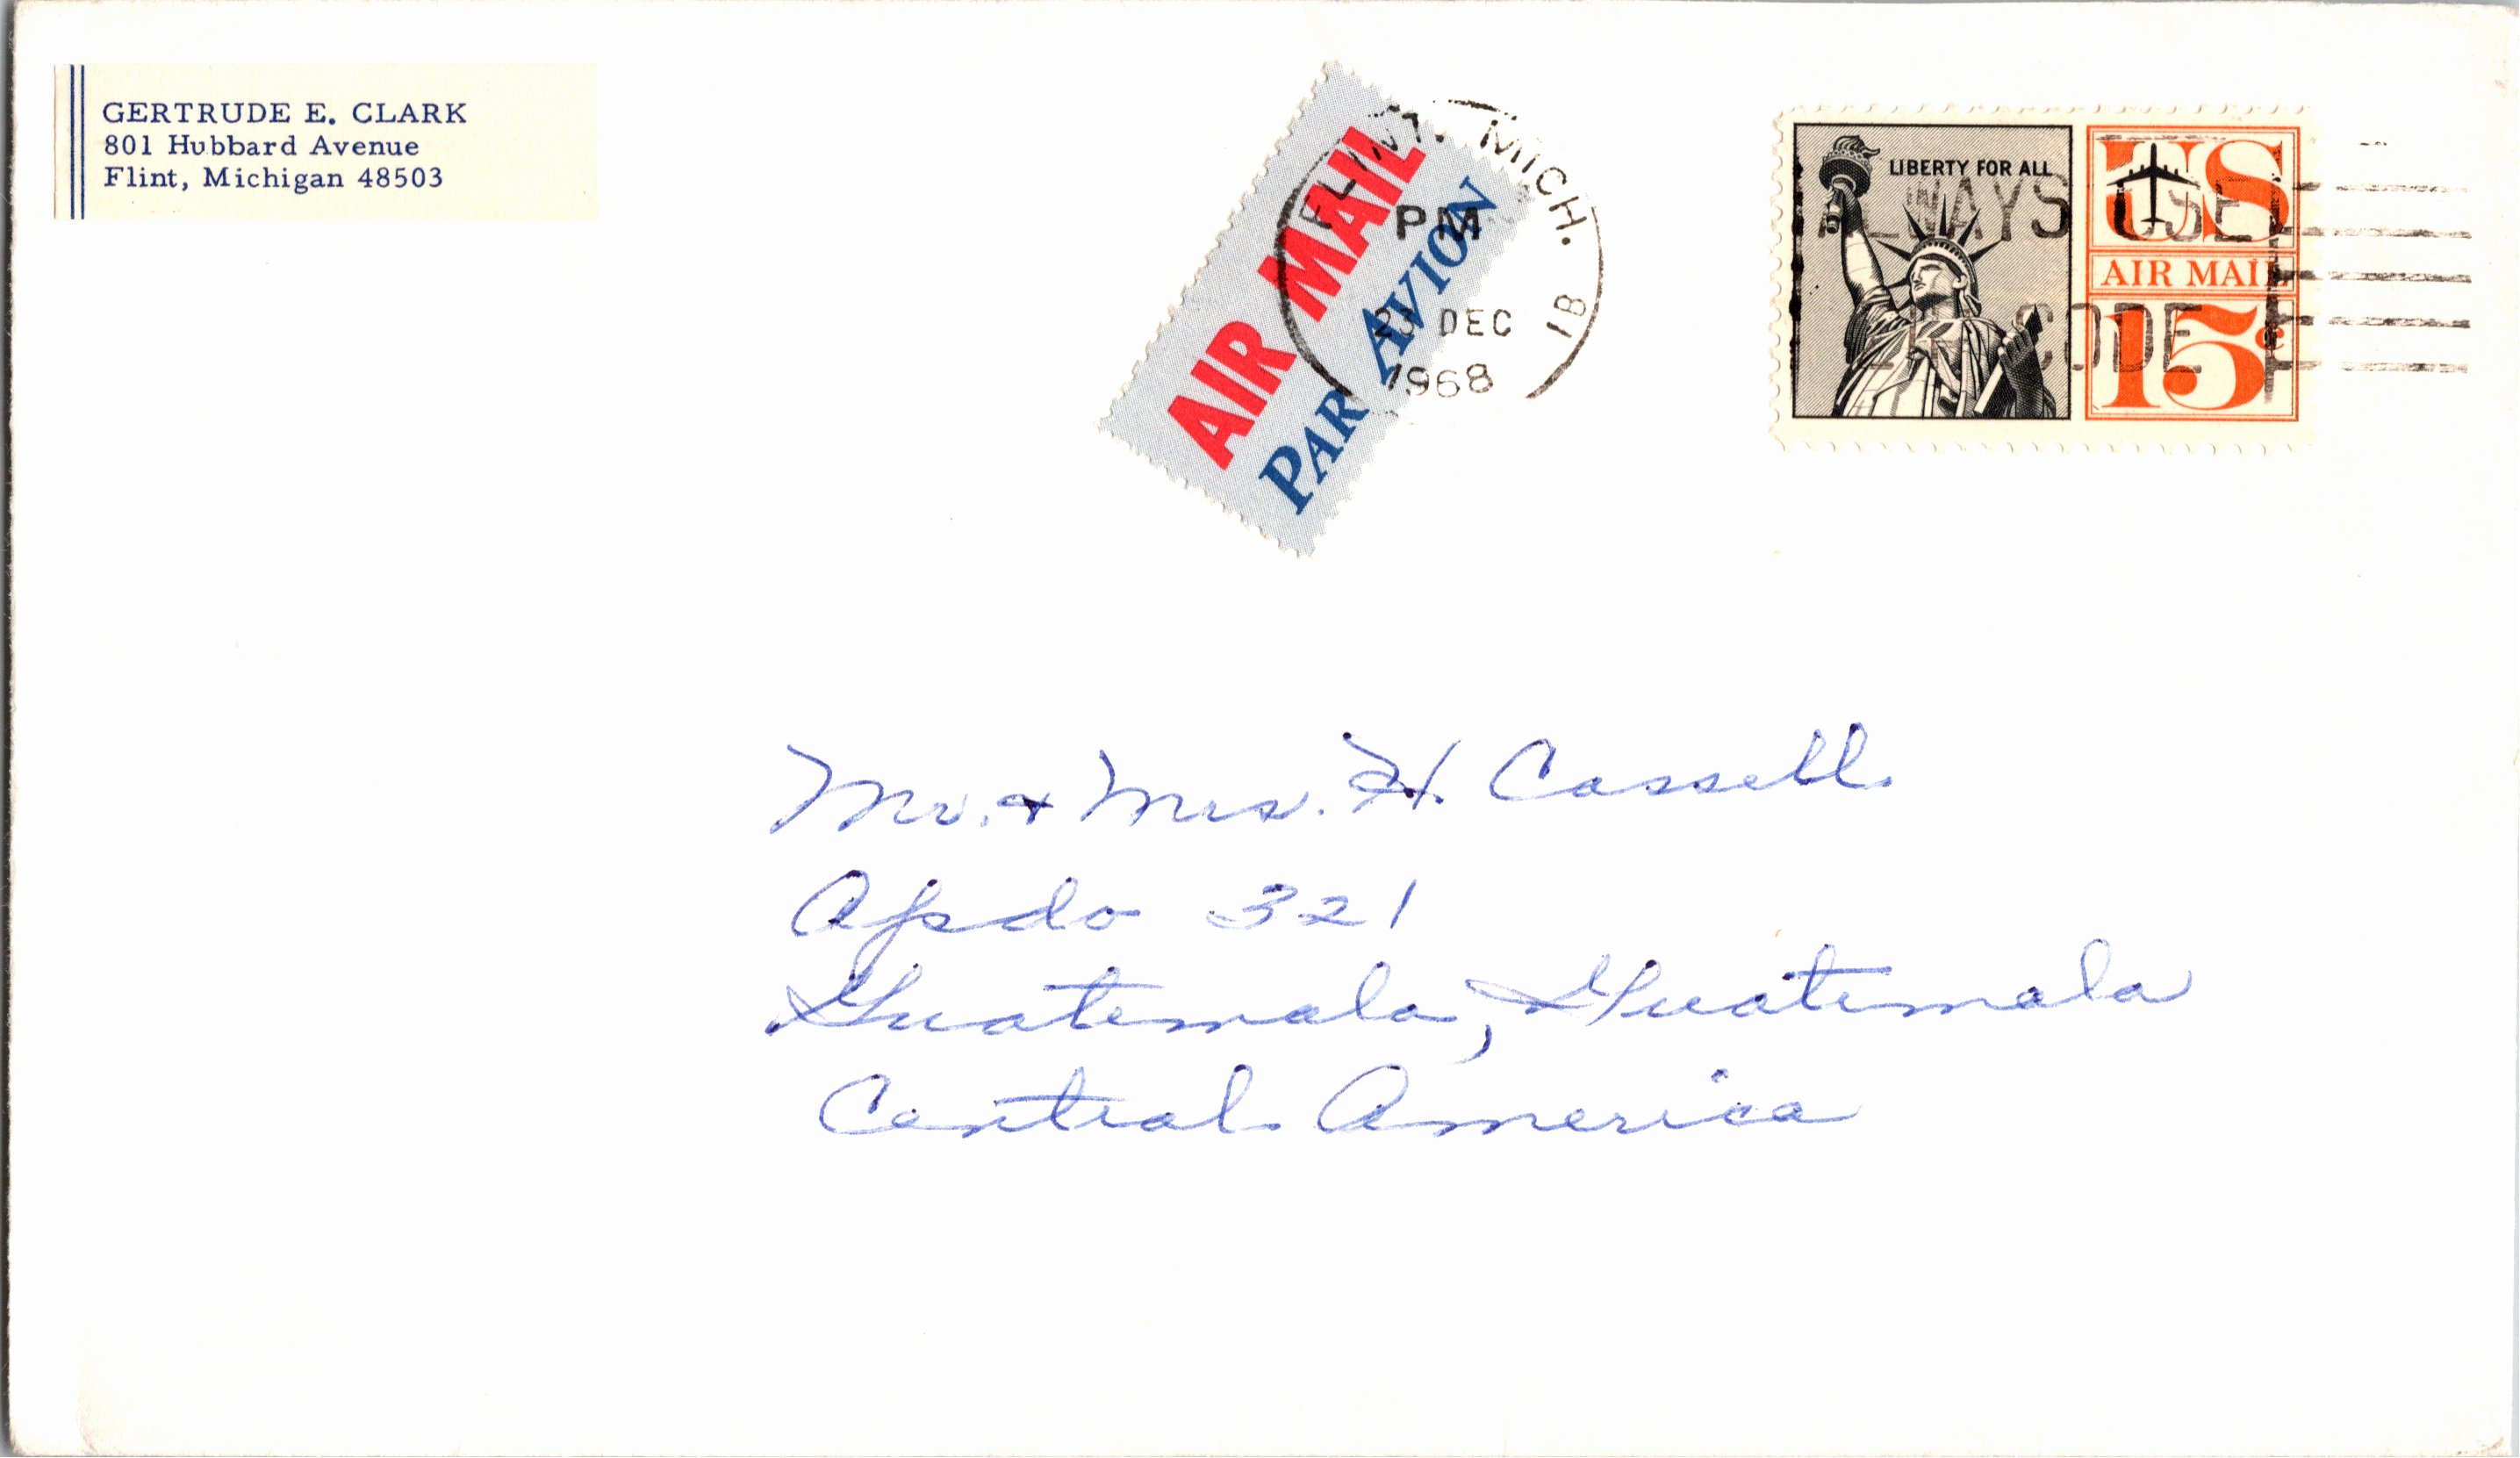 GERTRUDE E. CLARK
801 Hubbard Avenue
Flint, Michigan 48503
AIR MAIL
PAR AVION
FLINT, MICH.
PM
23 DEC
1968
1B
LIBERTY FOR ALL
US
AIR MAIL
15¢
ALWAYS USE
ZIP CODE
Mr. & Mrs. H. Cassell
Apdo 321
Guatemala, Guatemala
Central America